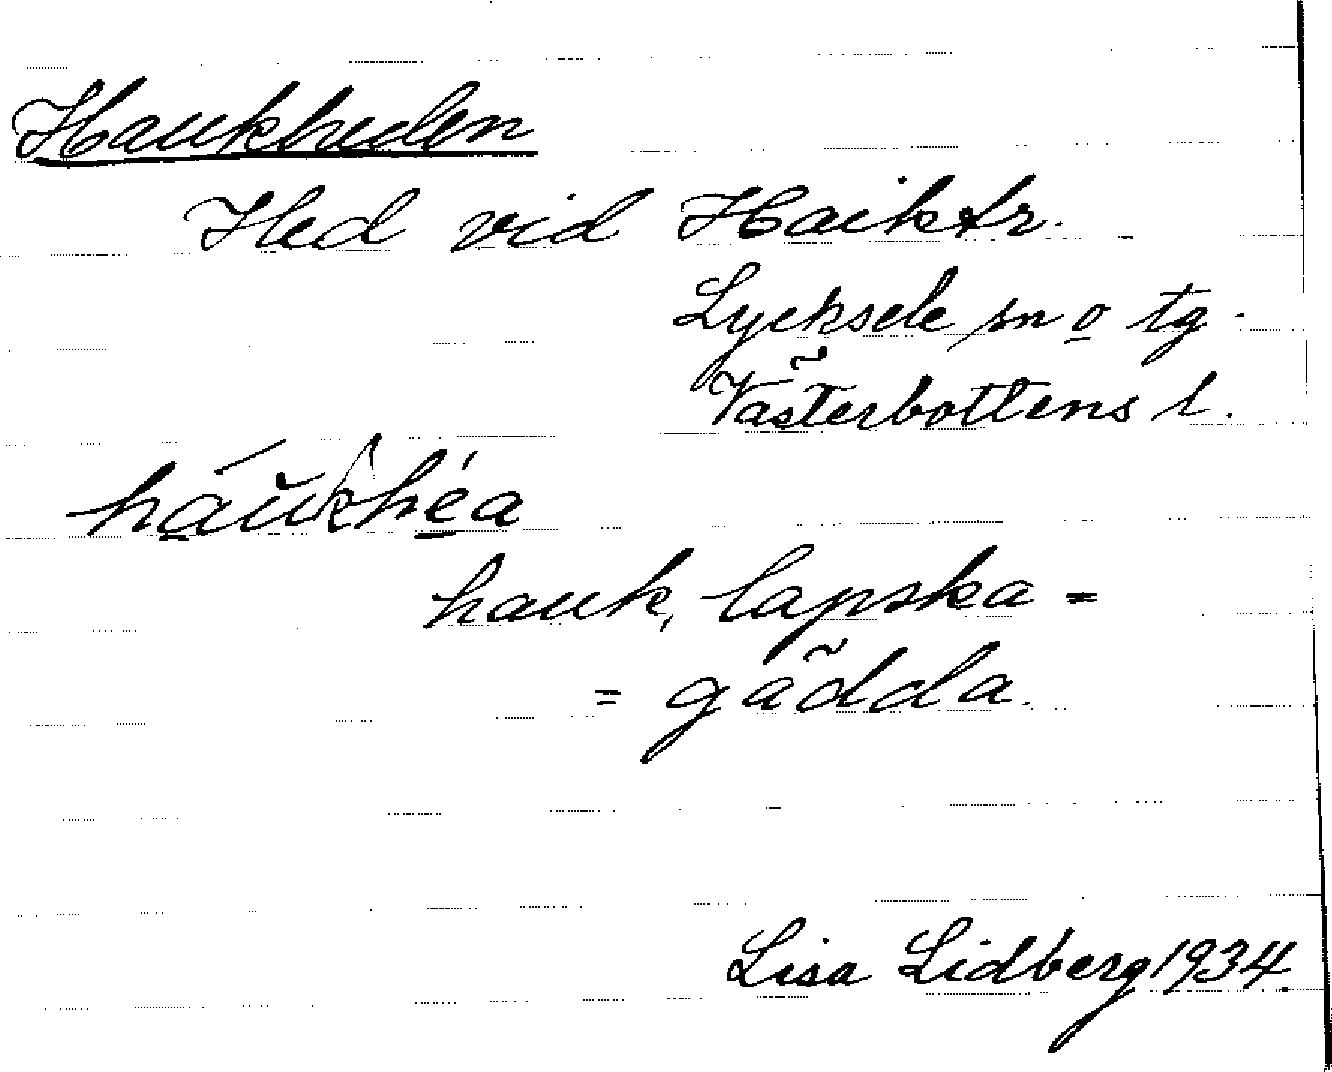 Haukheden
Hed vid Haiktr.
Lycksele sn o tg.
Västerbottens l.
háŭkhéa
hauk, lapska =
= gädda.
Lisa Lidberg 1934.